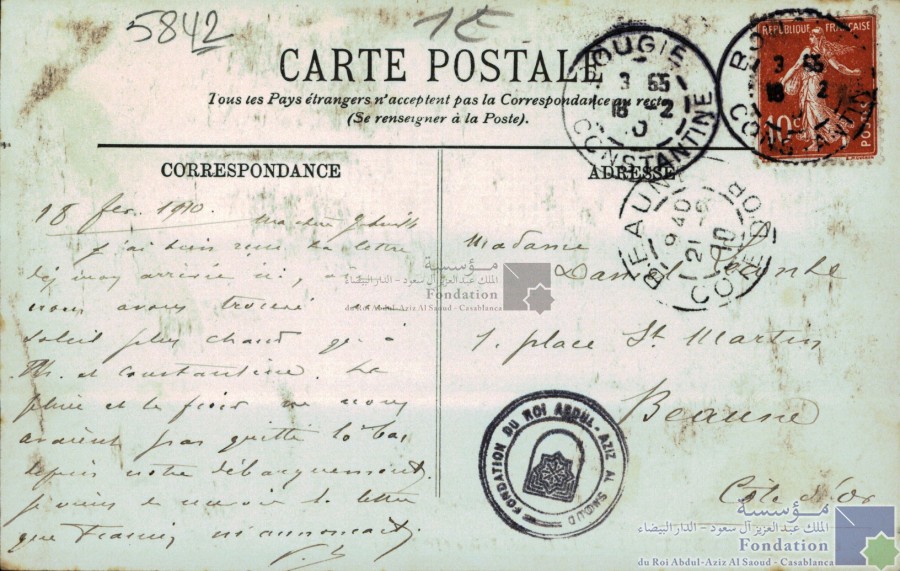 5842
1E
CARTE POSTALE
Tous les Pays étrangers n'acceptent pas la Correspondance au recto
(Se renseigner à la Poste).
CORRESPONDANCE
18 fév. 1910.
j'ai bien reçu ta lettre
nous avons trouvé un
soleil plus chaud qu'à
Th. et Constantine. La
pluie et le froid ne nous
avaient pas quitté
depuis notre débarquement.
la lettre
que m'annonçait
ADRESSE
Madame
Daniel
1, place St Martin
Beaune
Côte d'Or
RÉPUBLIQUE FRANÇAISE
10c
POSTES
BOUGIE
3 55
18 -2
10
CONSTANTINE
BOUGIE
3 55
18 2
CONSTANTINE
BEAUNE
9 40
21 -2
10
COTE D'OR
FONDATION DU ROI ABDUL-AZIZ AL SAOUD
مؤسسة
الملك عبد العزيز آل سعود - الدار البيضاء
Fondation
du Roi Abdul-Aziz Al Saoud - Casablanca
مؤسسة
الملك عبد العزيز آل سعود - الدار البيضاء
Fondation
du Roi Abdul-Aziz Al Saoud - Casablanca